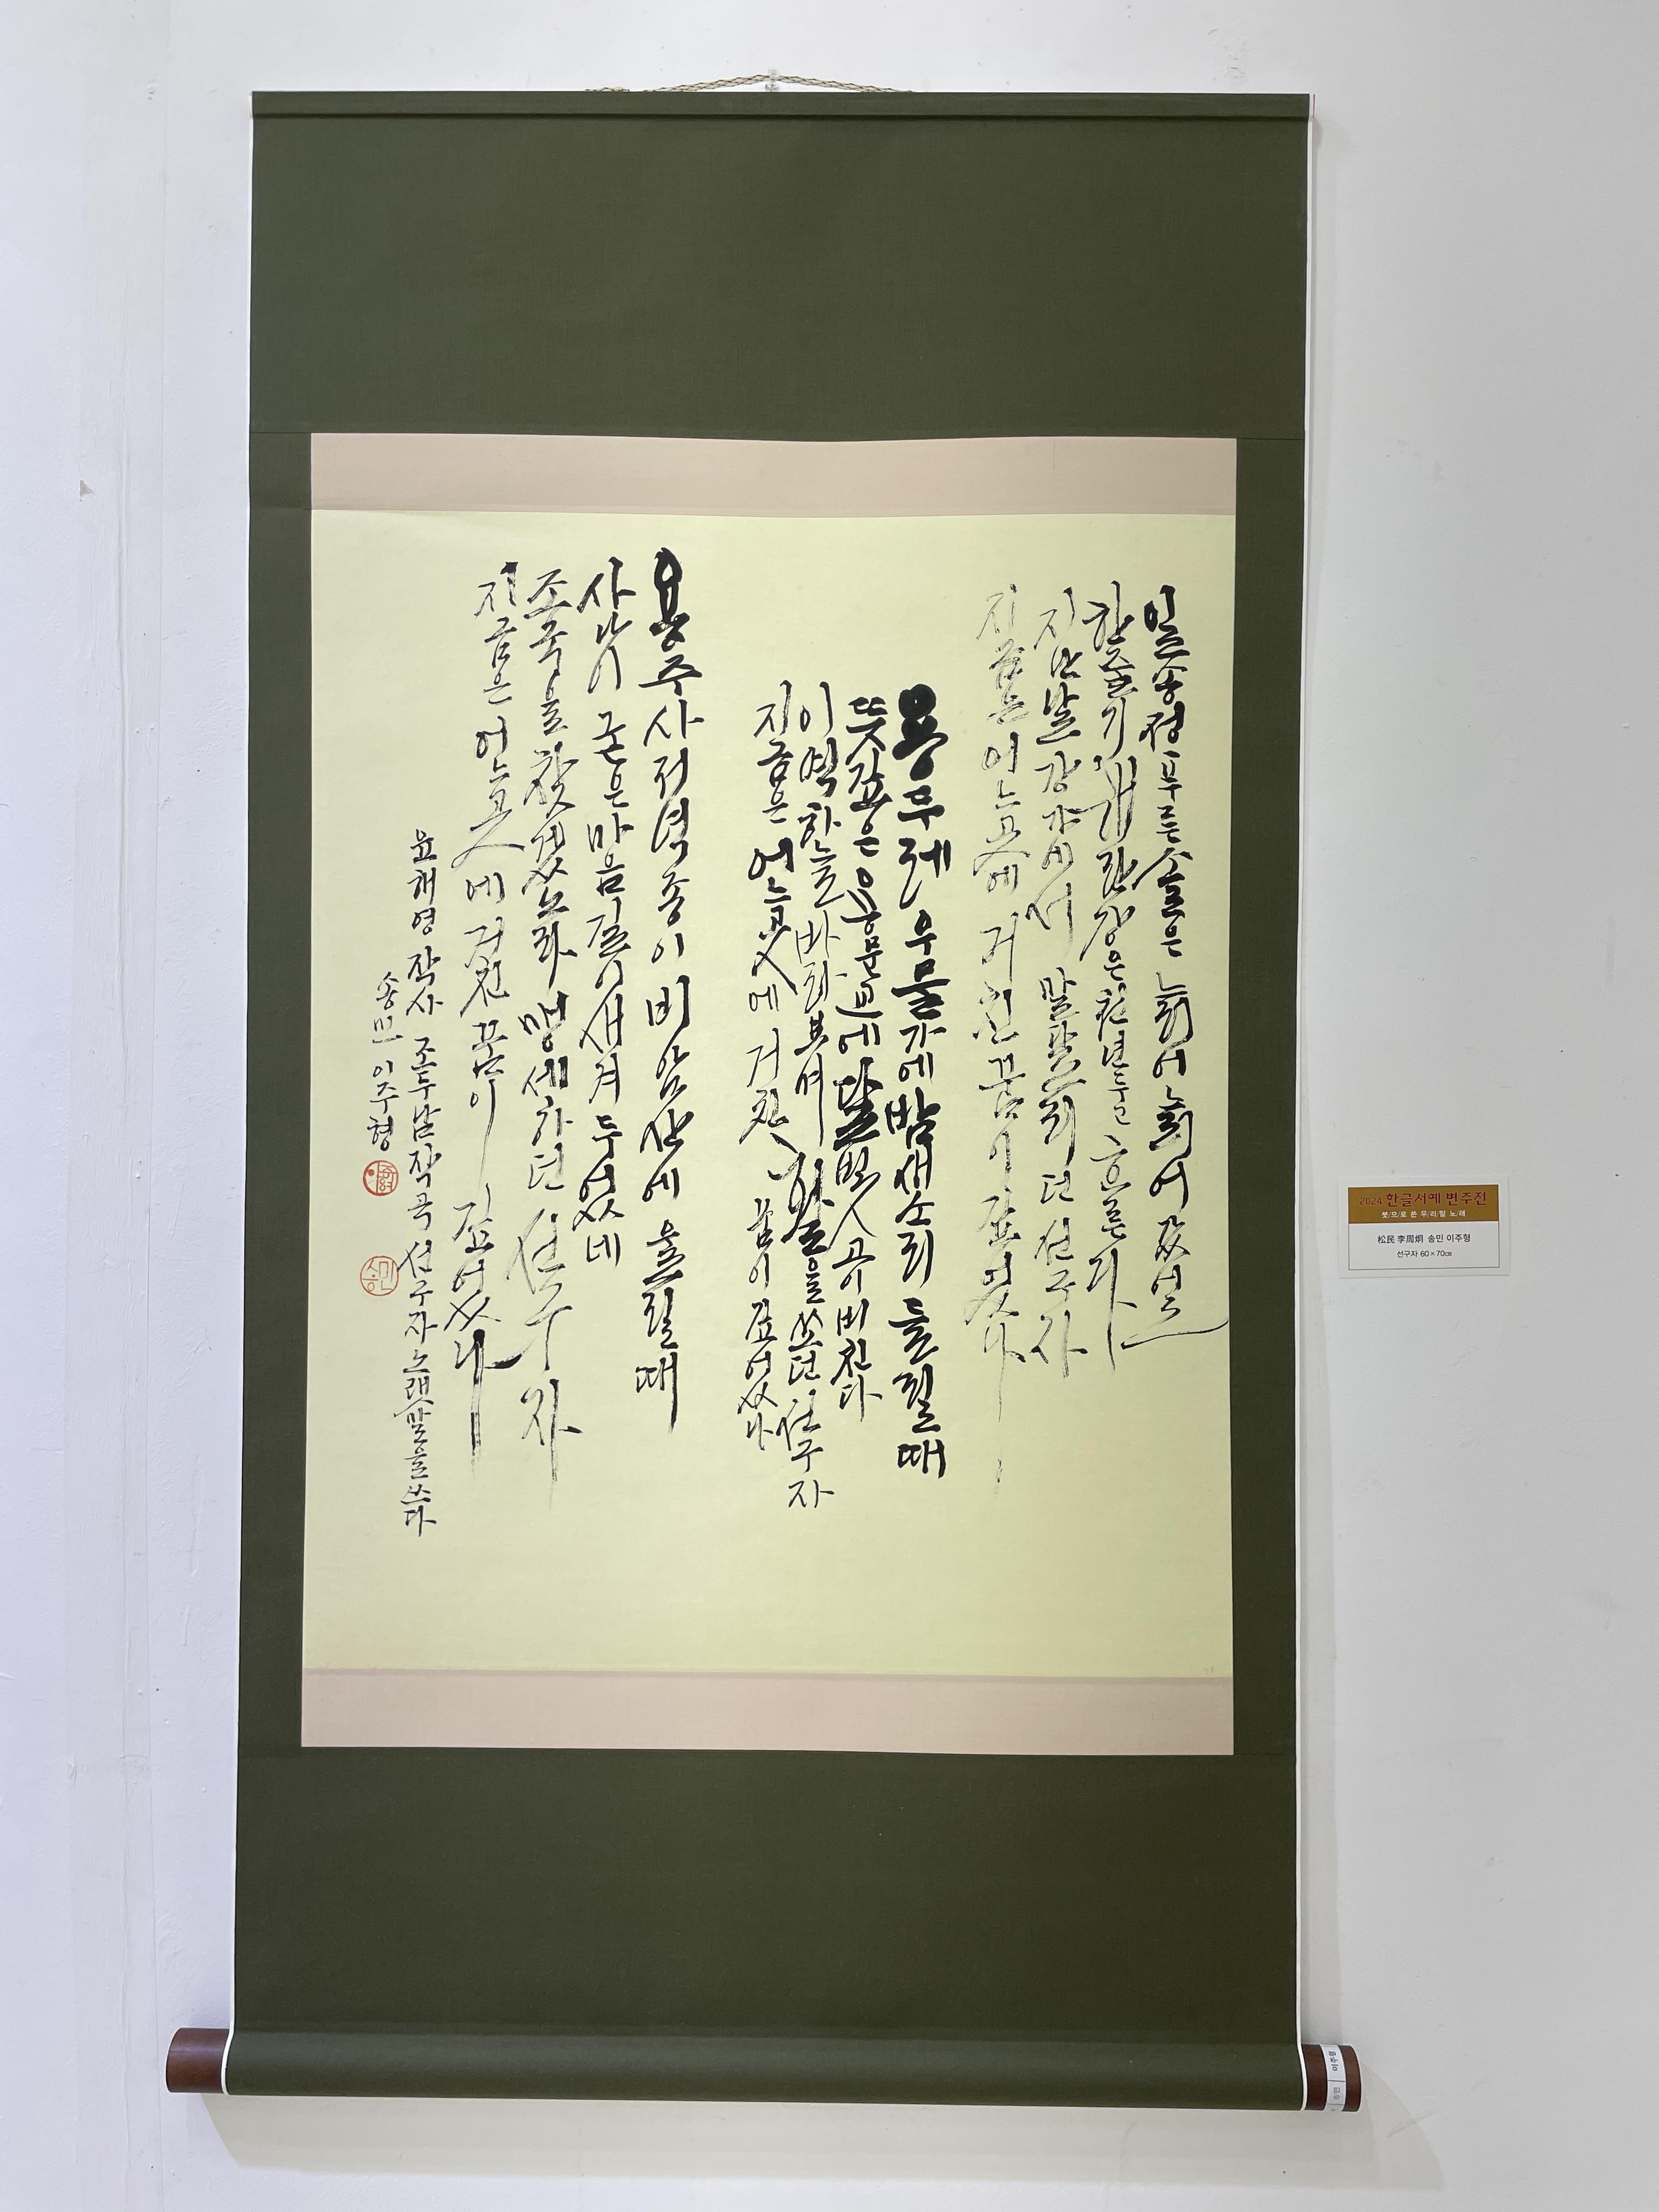 일송정 푸른 솔은 늙어 늙어 갔어도
한줄기 해란강은 천년두고 흐른다
지난날 강가에서 말달리던 선구자
지금은 어느곳에 거친 꿈이 깊었나
용두레 우물가에 밤새소리 들릴때
뜻깊은 용문교에 달빛 고이 비친다
이역하늘 바라보며 활을 쏘던 선구자
지금은 어느곳에 거친 꿈이 깊었나
용주사 저녁종이 비암산에 울릴때
사나이 굳은 마음 길이 새겨 두었네
조국을 찾겠노라 맹세하던 선구자
지금은 어느곳에 거친 꿈이 깊었나
윤해영 작사 조두남 작곡 선구자 노랫말을 쓰다
송민 이주형
송민
2024 한글서예 변주전
붓/으/로 쓴 우/리/말 노/래
松民 李周炯 송민 이주형
선구자 60×70㎝
이주형
송민